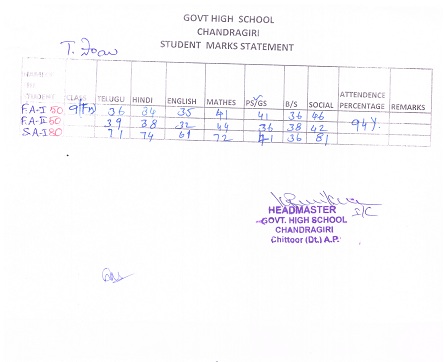 GOVT HIGH SCHOOL
CHANDRAGIRI
STUDENT MARKS STATEMENT
NAME OF STUDENT CLASS TELUGU HINDI ENGLISH MATHES PS/GS B/S SOCIAL ATTENDENCE PERCENTAGE REMARKS
F.A-I 50 36 34 35 41 41 36 46
F.A-II 50 39 38 32 44 36 38 42 94%
S.A-I 80 71 74 61 72 71 36 81
HEADMASTER I/C
GOVT. HIGH SCHOOL
CHANDRAGIRI
Chittoor (Dt.) A.P.